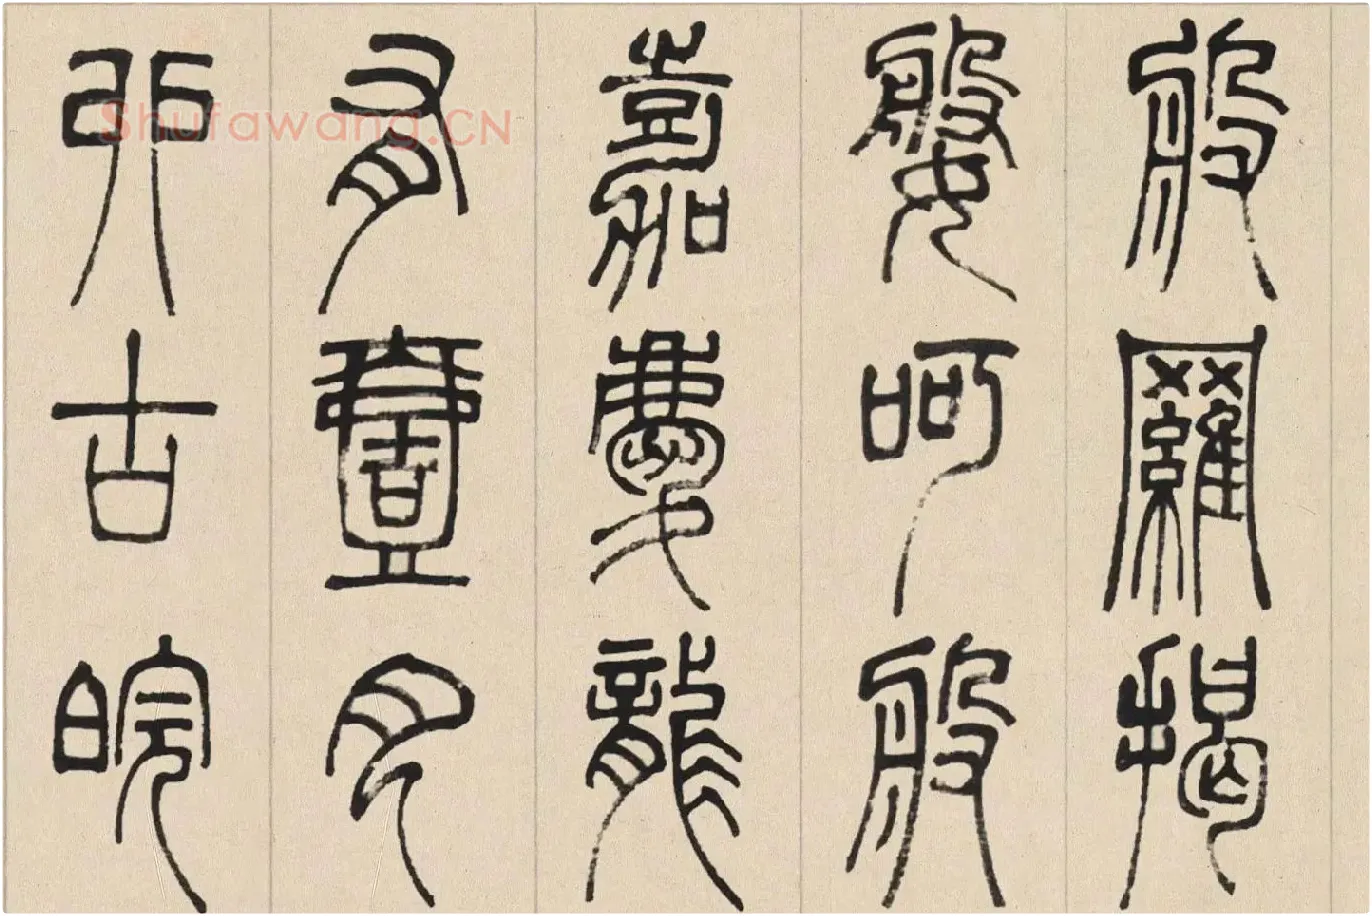 般羅揭
媻呵般
嘉慶龍
有壹月
卯古皖
Shufawang.CN